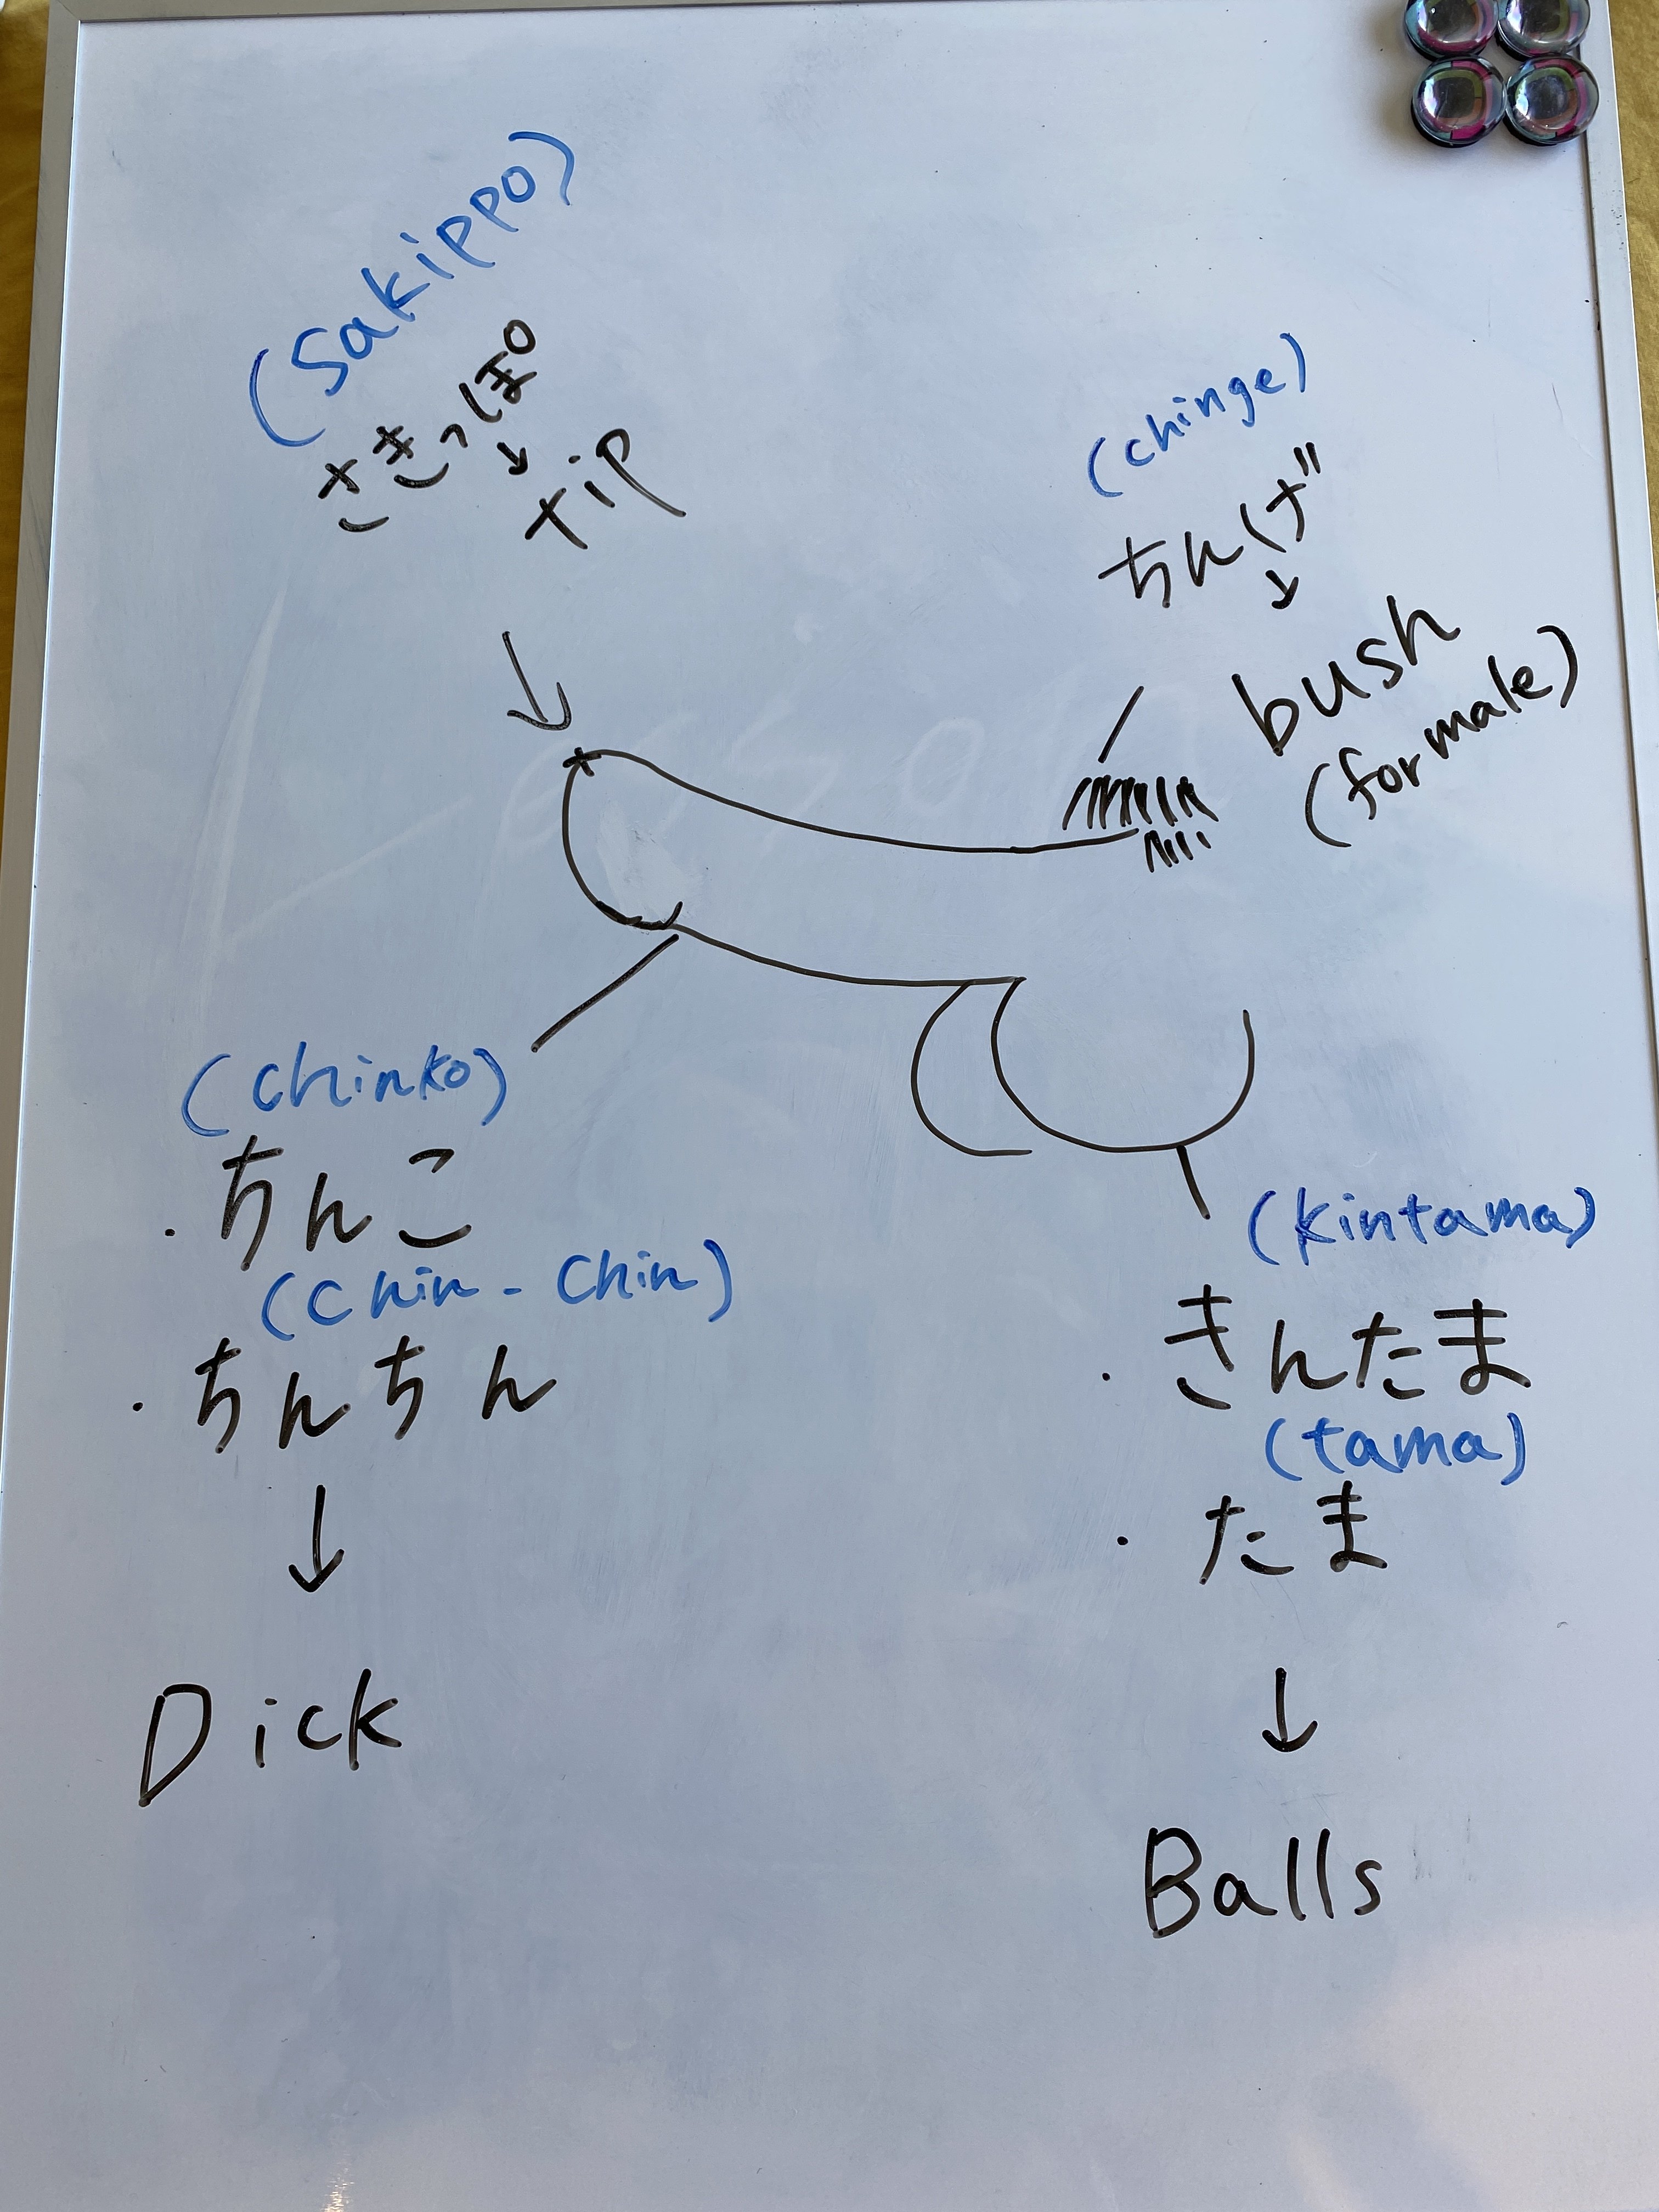 (Sakippo)
さきっぽ
↓
tip
(chinge)
ちんげ
↓
bush
(for male)
(chinko)
・ちんこ
(Chin-Chin)
・ちんちん
↓
Dick
(kintama)
・きんたま
(tama)
・たま
↓
Balls